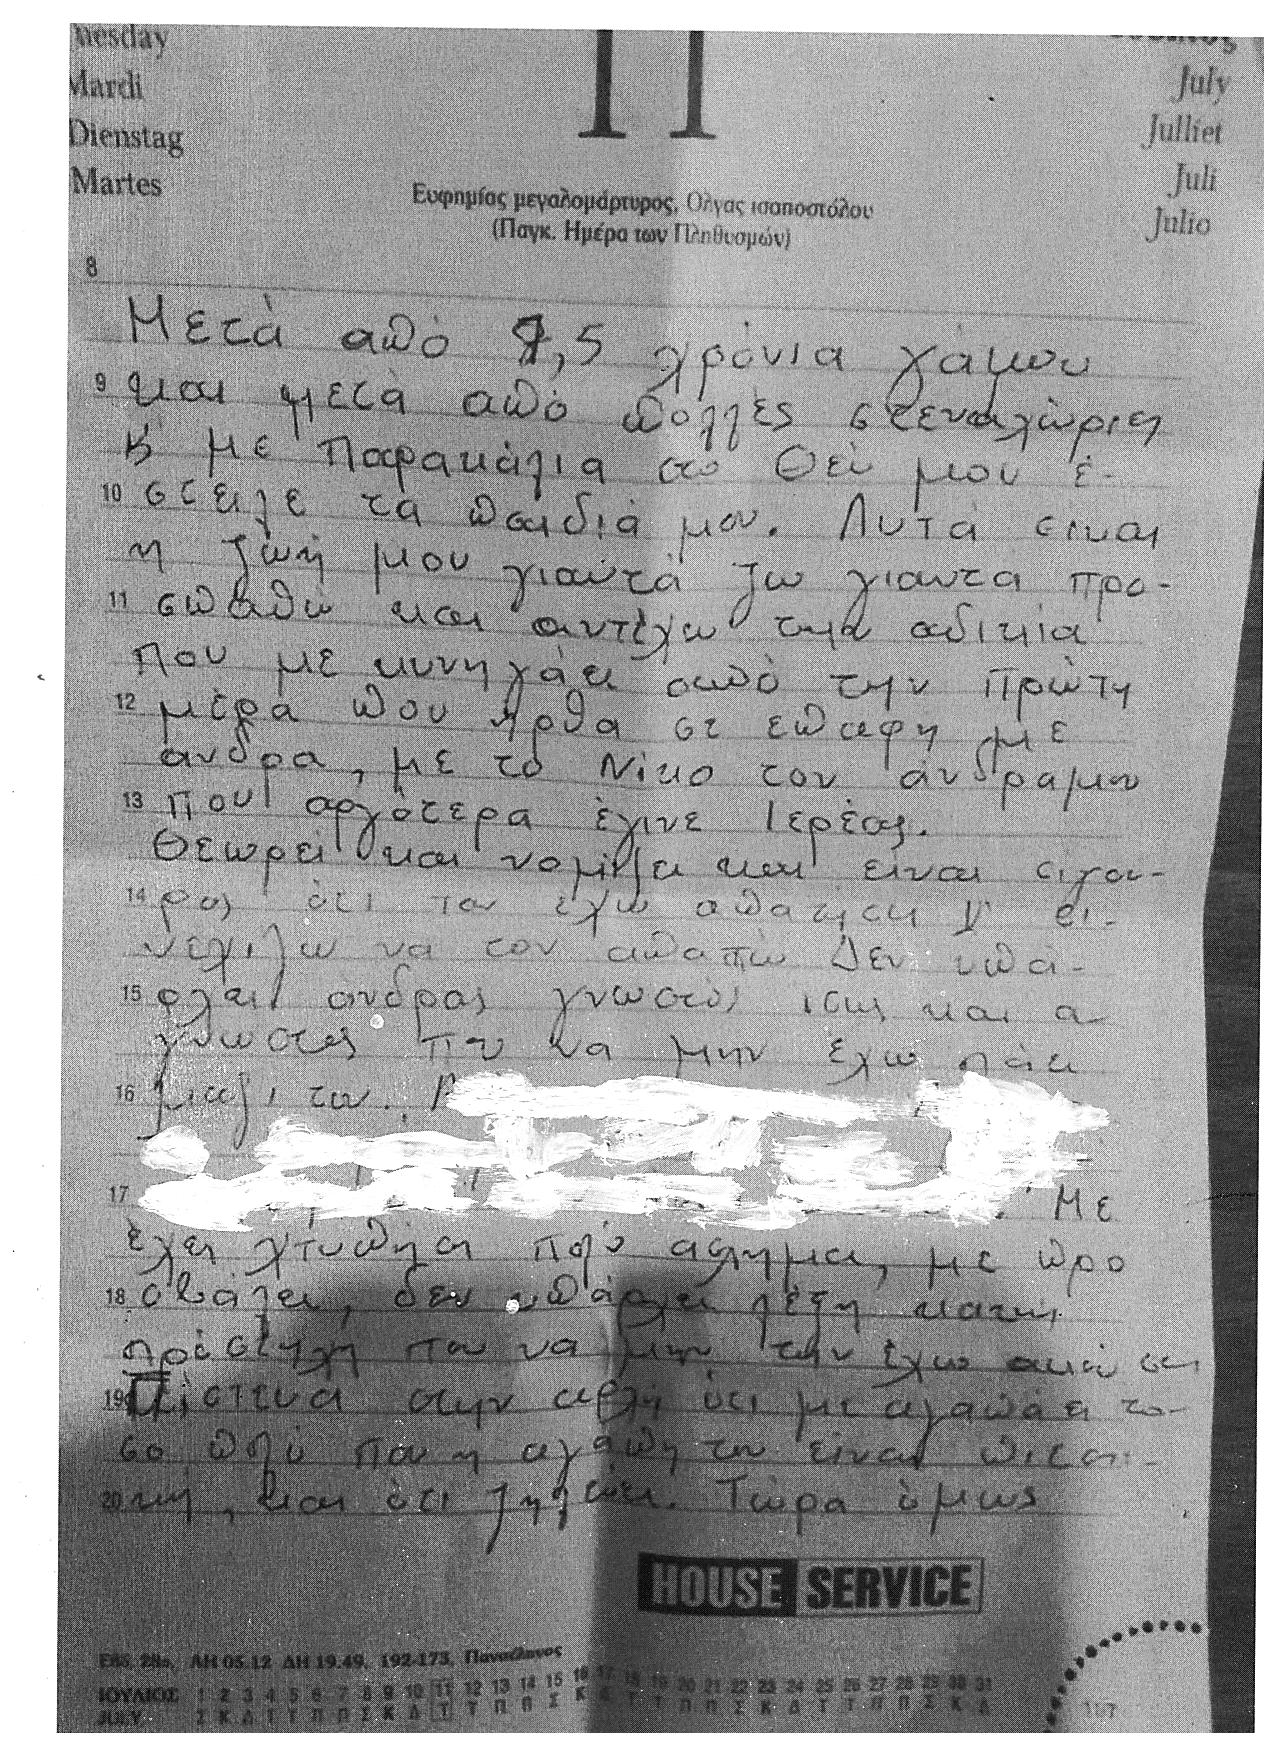 Tuesday
Mardi
Dienstag
Martes
11
July
Julliet
Juli
Julio
Ευφημίας μεγαλομάρτυρος, Όλγας ισαποστόλου
(Παγκ. Ημέρα των Πληθυσμών)
8
Μετά από 9,5 χρόνια γάμου
9 και μετά από πολλές στεναχώριες
κ με Παρακάλια στο Θεό μου έ-
10 στειλε τα παιδιά μου. Αυτά είναι
η ζωή μου γιαυτά ζω γιαυτα προ-
11 σπαθώ και αντέχω την αδικία
που με κυνηγάει από την πρώτη
12 μέρα που ήρθα σε επαφη με
άνδρα, με το Νίκο τον άνδραμου
13 που αργότερα έγινε Ιερέας.
Θεωρεί και νομίζει και είναι σιγου-
14 ρος ότι τον έχω απατησει κ
να τον απατώ Δεν υπά-
15 ρχει άνδρας γνωστός ισως και α
γνωστος που να μην έχω πάει
16 μαζί του.
17 Με
έχει χτυπήσει πολύ ασχημα, με προ
18 σβάλει, δεν υπάρχει λέξη κακιά
πρόστυχη που να μην την έχω ακούσει
19 Πίστευα στην αρχή ότι με αγαπάει το-
σο πολύ που η αγάπη του είναι
20 και ότι ζηλεύει. Τώρα όμως
HOUSE SERVICE
Εβδ. 28η, ΑΗ 05.12 ΔΗ 19.49, 192-173, Πανσέληνος
ΙΟΥΛΙΟΣ 1 2 3 4 5 6 7 8 9 10 11 12 13 14 15 16 17 18 19 20 21 22 23 24 25 26 27 28 29 30 31
JULY Σ Κ Δ Τ Τ Π Π Σ Κ Δ Τ Τ Π Π Σ Κ Δ Τ Τ Π Π Σ Κ Δ Τ Τ Π Π Σ Κ Δ